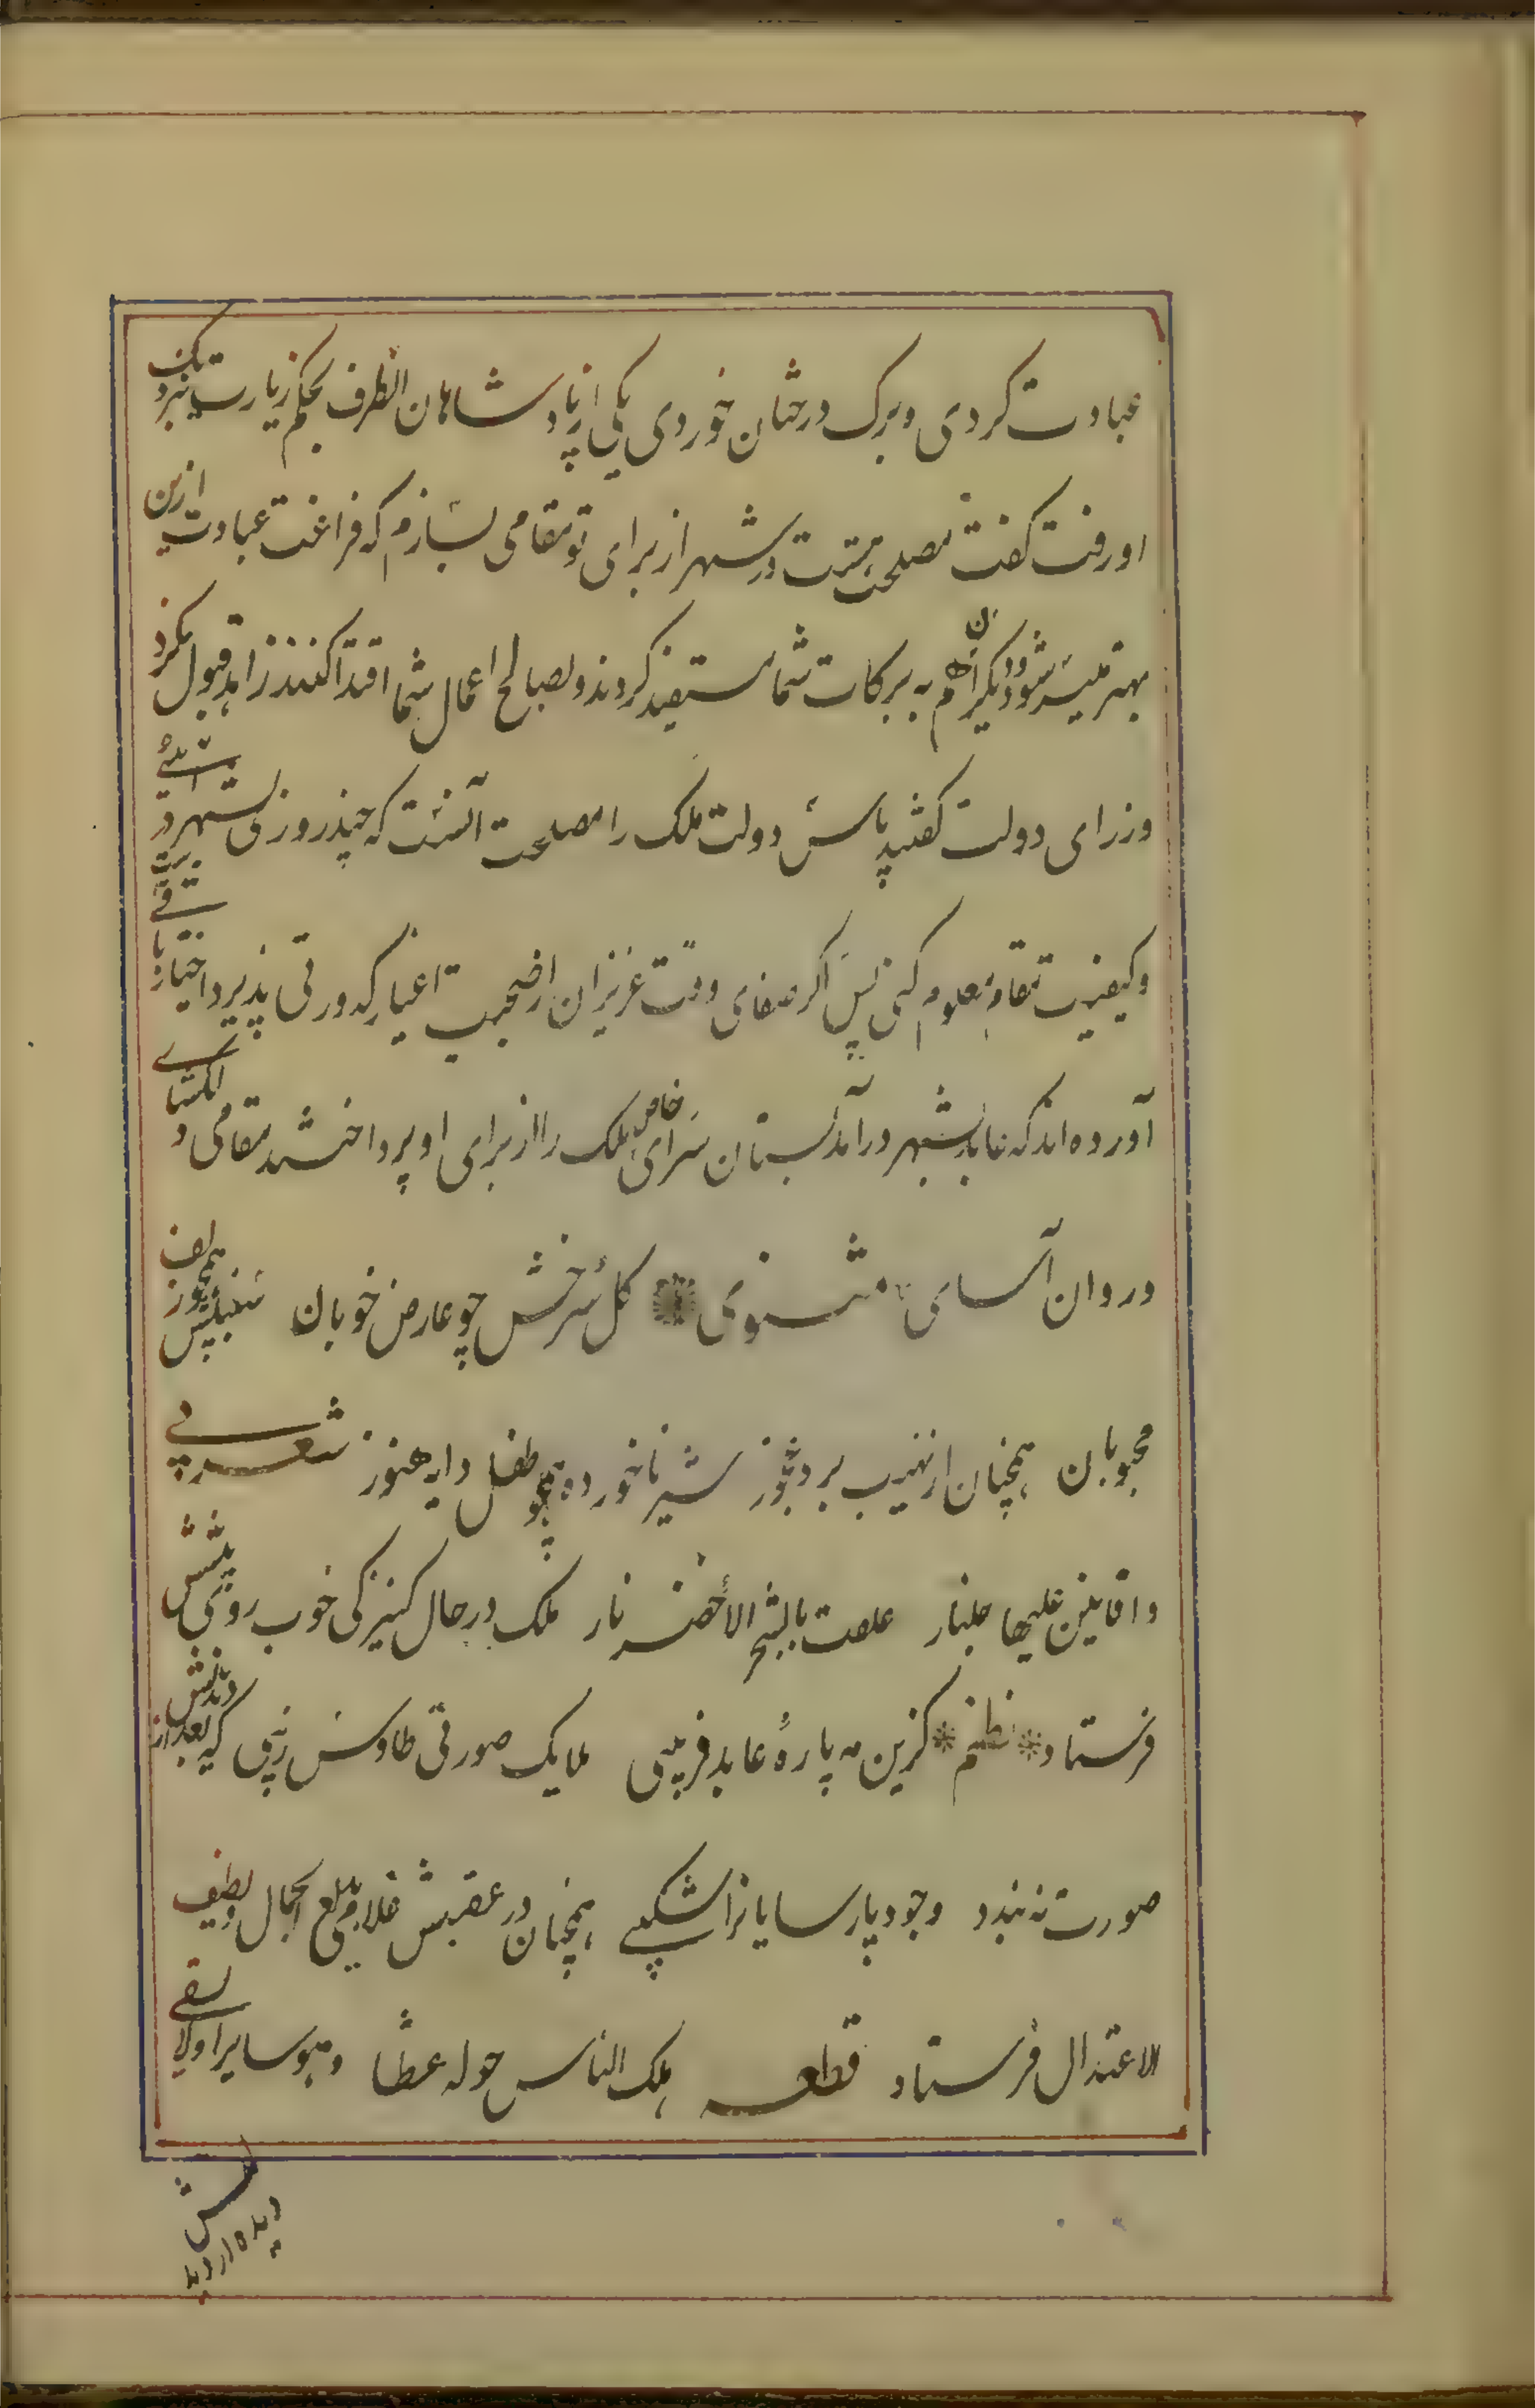 عبادت کردی و برک درختان خوردی یکی از پادشاهان انطرف بحکم زیارت بنزدیک
او رفت کفت مصلحت هست در شهر از برای تو مقامی بسازم که فراغت عبادت ازین
بهتر میسر شود و دیکران هم به برکات شما مستفید کردند و بصالح اعمال شما اقتدا کنند زاهد قبول نکرد
وزرای دولت کفتند پاس دولت ملک را مصلحت آنست که چند روزی بشهر در
و کیفیت مقام معلوم کنی پس اکر صفای وقت عزیزان را صحبت اغیار کدورتی پذیرد اختیار باقیست
آورده اند که عابد بشهر درآمد بستان سرای خاص ملک را از برای او پرداختند مقامی دلکشای
و روان آسای مثنوی کل سرخش چو عارض خوبان سنبلش همچو زلف
محبوبان همچنان از نهیب برد عجوز شیر ناخورده همچو طفل دایه هنوز شعر
و افانین علیها جلنار علقت بالشجر الاخضر نار ملک در حال کنیزکی خوب روی پیشش
فرستاد نظم کزین مه پارهٔ عابد فریبی ملایک صورتی طاوس زیبی که بعد از دیدنش
صورت نه بندد وجود پارسایانرا شکیبی همچنان در عقبش غلامی بدیع الجمال و لطیف
الاعتدال فرستاد قطعه هلک الناس حوله عطشا و هو سایر اولا یسقی
دیده از دید